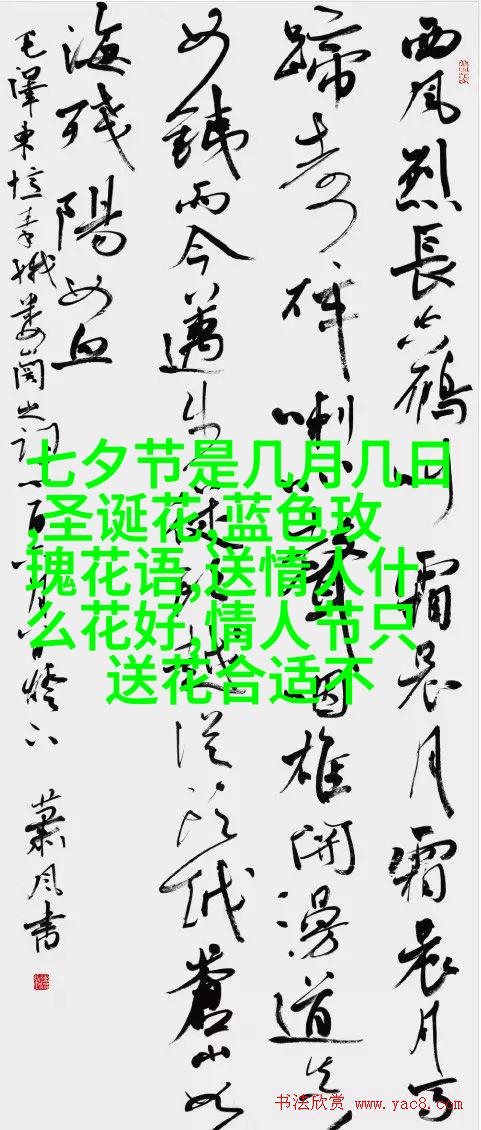 西风烈長空雁叫霜晨月霜晨月馬
蹄声碎喇叭聲咽雄関漫道真
如鐵而今邁步從頭越從頭越蒼山如
海殘陽如血
毛澤東憶秦娥娄山関之詞
萧风書
七夕节是几月几日
,圣诞花,蓝色玫
瑰花语,送情人什
么花好,情人节只
送花合适不
书法欣赏 www.yac8.com